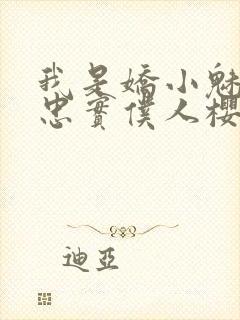 我是嬌小魅
忠實僕人櫻
迪亞